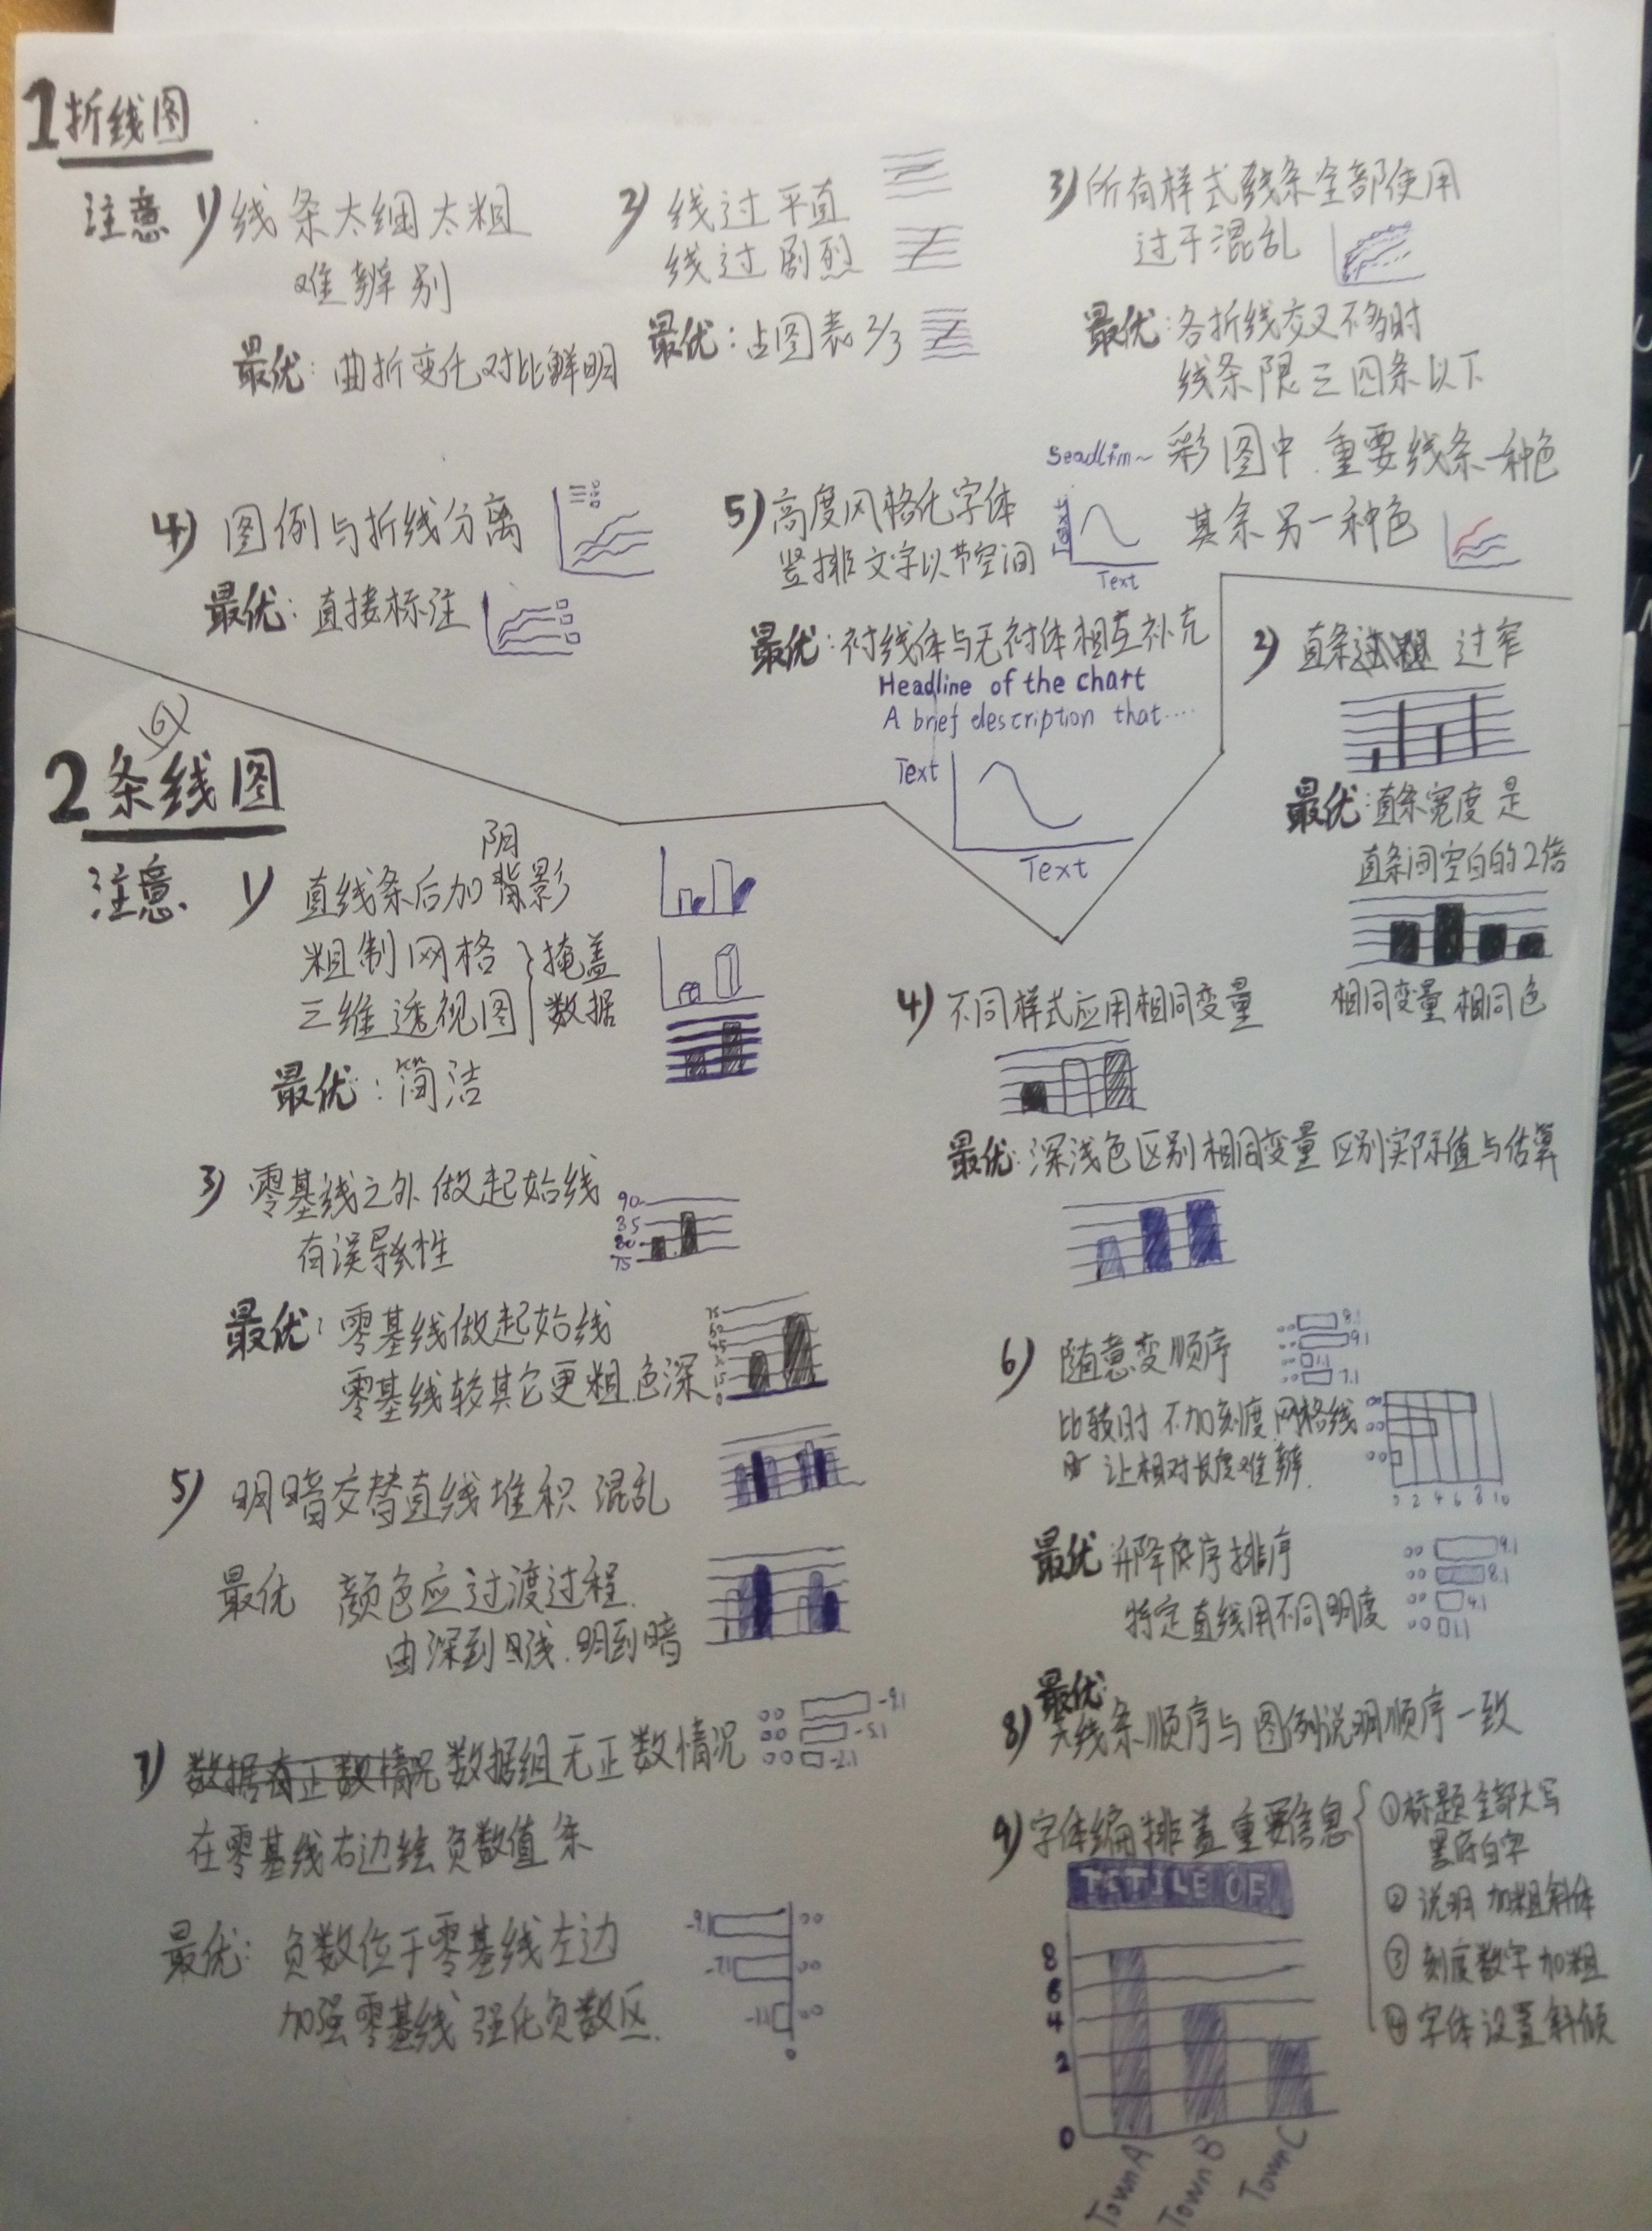 1 折线图
注意 1) 线条太细太粗
难辨别
最优：曲折变化对比鲜明
2) 线过平直
线过剧烈
最优：占图表2/3
3) 所有样式线条全部使用
过于混乱
最优：各折线交叉不多时
线条限三四条以下
彩图中.重要线条一种色
其余另一种色
4) 图例与折线分离
最优：直接标注
5) 高度风格化字体
竖排文字以节空间
Text
Text
最优：衬线体与无衬体相互补充
Headline of the chart
A brief description that....
Text
Text
2 条线图
注意. 1) 直线条后加阴影
粗制网格
三维透视图
掩盖
数据
最优：简洁
2) 直条 过窄
最优：直条宽度是
直条间空白的2倍
相同变量相同色
3) 零基线之外做起始线
有误导性
90
85
80
75
最优：零基线做起始线
零基线较其它更粗.色深
4) 不同样式应用相同变量
最优：深浅色区别相同变量 区别实际值与估算
5) 明暗交替直线堆积 混乱
最优 颜色应过渡过程.
由深到浅.明到暗
6) 随意变顺序
8.1
9.1
1.1
7.1
比较时 不加刻度.网格线
让相对长度难辨.
2 4 6 8 10
最优：升降序排序
特定直线用不同明度
9.1
8.1
4.1
1.1
7) 数据组无正数情况
-9.1
-5.1
-2.1
在零基线右边绘负数值条
最优：负数位于零基线左边
加强零基线 强化负数区.
-9.1
-7.1
-1.1
0
8) 最优：
线条顺序与图例说明顺序一致
9) 字体编排盖重要信息
①标题全部大写
黑底白字
② 说明 加粗斜体
③ 刻度数字加粗
④ 字体设置斜倾
8
6
4
2
0
Town A
Town B
Town C